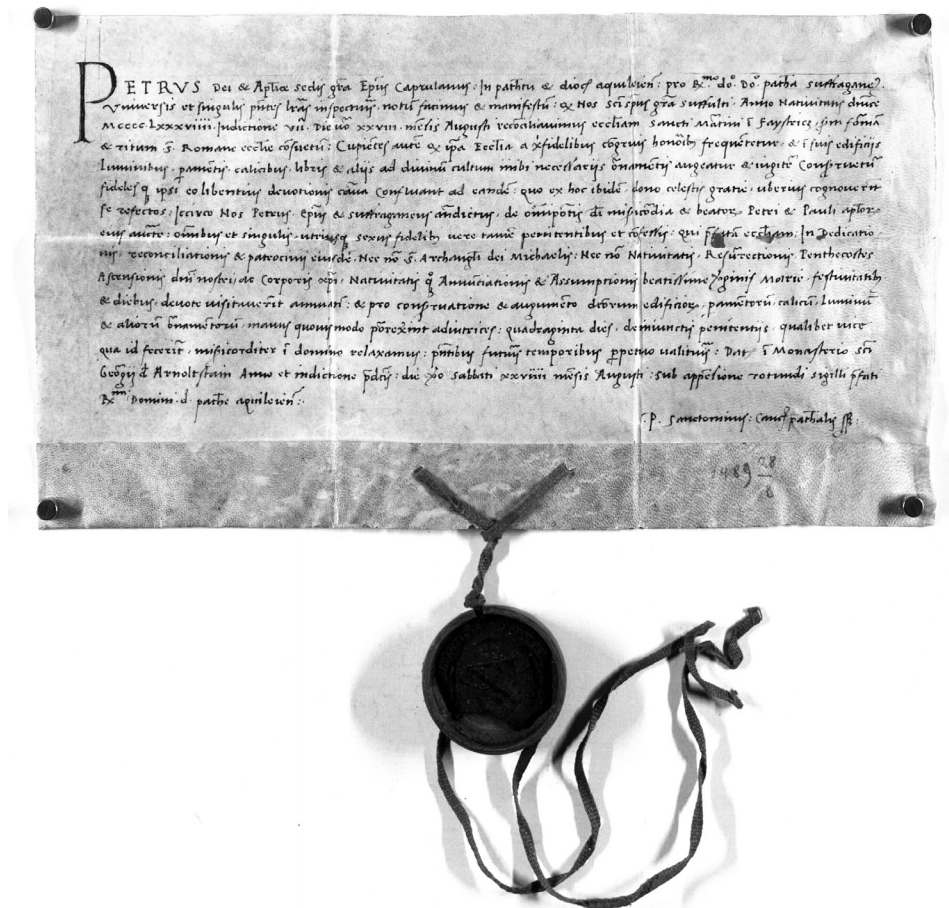 PETRVS Dei & Ap̄licę sedis gr̄a Ep̄us Caprulanus: In patħtu & dioc̄ aquileien̄: pro R.mo do. Do. patħa suffraganeꝰ.
Vniversis et singulis pn̄tes lr̄as inspecturis, notū facimus & manifestū: ꝙ Nos sci sp̄us gr̄a suffulti. Anno Nativitatis dn̄ice
MCCCC.LXXXVIIII. Indictione vii. Die v̄o XXVIII. mēsis Augusti reconciliavimus eccl̄iam Sancti Martini ī Faystricz, iux formā
& ritum S. Romane ecclie cōsuetū: Cupiētes autē ꝙ ip̄a Ecclia a xp̄ifidelibus cōgruis honorib̄ frequētetur, & ī suis edificijs
Luminibus, pamētis, calicibus, libris & alijs ad divinū cultum inibi necessarijs ōnamētis augeatur & iugitē Conservetur
fidelesq̨ ipsi eo libentius devotionis causa Confluant ad eandē: quo ex hoc ibidē, dono celestis gratie, uberius cognoverīt
se refectos: Iccirco Nos Petrus, Ep̄us & suffraganeus an̄dictus, de om̄ipotīs dī misicordia & beatoꝝ Petri & Pauli apl̄oꝝ
eius aucte: om̄ibus et singulis, utriusq̨ sexus fidelib̄ vere tamē penitentibus et cōfessis: qui p̄fatā eccl̄iam: In Dedicatio
nis, reconciliationis & patrocinij eiusdē: Nec nō S. Archangl̄i dei Michaelis: Nec nō Nativitatis, Resurrectionis, Penthecostes
Ascensionis dn̄i nostri, ac Corporis xp̄i, Nativitatis q̨ Annūciationis & Assumptionis beatissime v̄ginis Marie, festivitatib̄
& diebus, devote visitaverīt annuatī: & pro conservatione & augumēto dictorum edificioꝝ, pamētorū, calicū, Luminū
& aliorū ōnamētorū, manus quovismodo porrexīnt adiutrices: quadraginta dies, de iniunctis penitentijs, qualibet vice
qua id fecerīt, misicorditer ī domino relaxamus: pn̄tibus futuris temporibus p̱petuo valituris: Dat̄ ī Monasterio sci
Georgij d̄ Arnoltstain Anno et indictione p̄dctis: die v̄o Sabbati xxviiii mēsis Augusti: Sub appēsione rotundi sigilli p̄fati
R.mi Domini. d. patħe aquileien̄:.
.P. Sanctoninus: Canc̄s patħalis ss̄:
1489 28/8